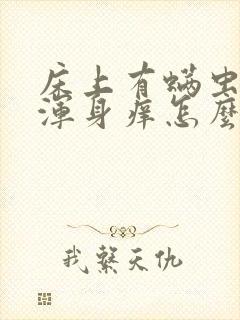 床上有螨虫
渾身痒怎麼
我繫天仇